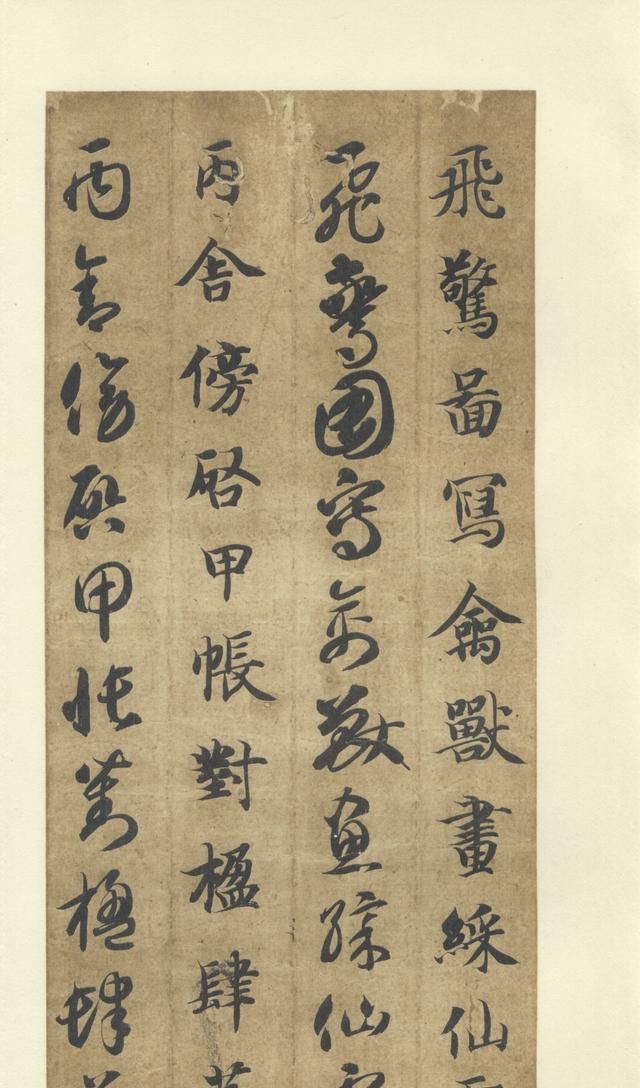 飛驚啚寫禽獸畫綵仙
飛驚圖寫禽獸畫綵仙
丙舍傍啓甲帳對楹肆
丙舍傍啓甲帳對楹肆